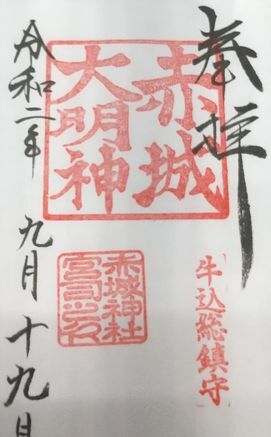 奉拝
赤城
大明神
牛込総鎮守
赤城神社
宮司之印
令和二年
九月十九日